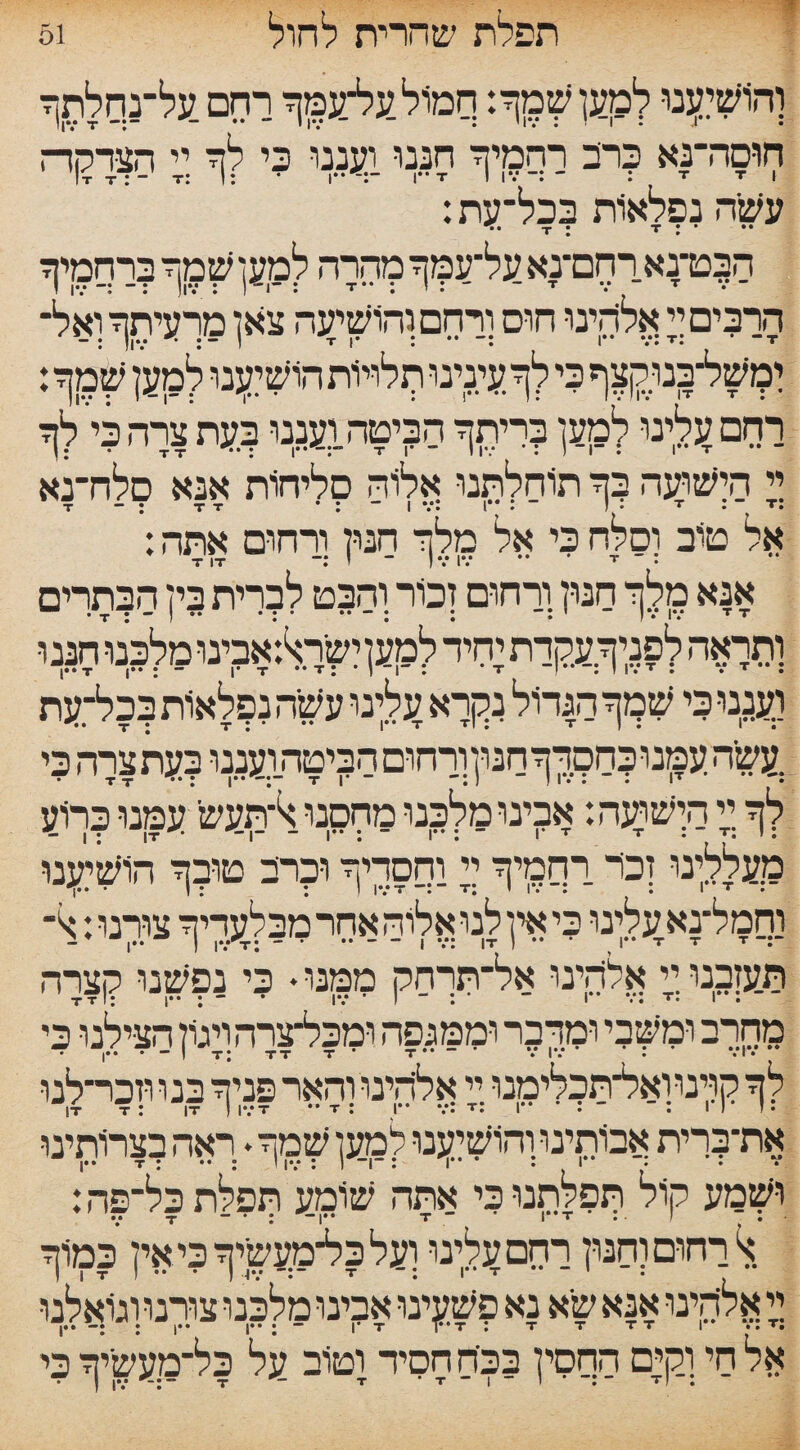 תפלת שחרית לחול 51
וְהוֹשִׁיעֵנוּ לְמַעַן שְׁמֶךָ: חֲמוֹל עַל־עַמֶּךָ רַחֵם עַל־נַחֲלָתֶךָ
חוּסָה־נָּא כְּרֹב רַחֲמֶיךָ חָנֵּנוּ וַעֲנֵנוּ כִּי לְךָ יְיָ הַצְּדָקָה
עֹשֵׂה נִפְלָאוֹת בְּכָל־עֵת:
הַבֶּט־נָא רַחֶם־נָא עַל־עַמְּךָ מְהֵרָה לְמַעַן שְׁמֶךָ בְּרַחֲמֶיךָ
הָרַבִּים יְיָ אֱלֹהֵינוּ חוּס וְרַחֵם וְהוֹשִׁיעָה צֹאן מַרְעִיתֶךָ וְאַל־
יִמְשָׁל־בָּנוּ קֶצֶף כִּי לְךָ עֵינֵינוּ תְלוּיוֹת הוֹשִׁיעֵנוּ לְמַעַן שְׁמֶךָ:
רַחֵם עָלֵינוּ לְמַעַן בְּרִיתֶךָ הַבִּיטָה וַעֲנֵנוּ בְּעֵת צָרָה כִּי לְךָ
יְיָ הַיְשׁוּעָה בְּךָ תוֹחַלְתֵּנוּ אֱלוֹהַּ סְלִיחוֹת אָנָּא סְלַח־נָא
אֵל טוֹב וְסַלָּח כִּי אֵל מֶלֶךְ חַנּוּן וְרַחוּם אָתָּה:
אָנָּא מֶלֶךְ חַנּוּן וְרַחוּם זְכוֹר וְהַבֵּט לִבְרִית בֵּין הַבְּתָרִים
וְתֵרָאֶה לְפָנֶיךָ עֲקֵדַת יָחִיד לְמַעַן יִשְׂרָאֵל: אָבִינוּ מַלְכֵּנוּ חָנֵּנוּ
וַעֲנֵנוּ כִּי שִׁמְךָ הַגָּדוֹל נִקְרָא עָלֵינוּ עֹשֵׂה נִפְלָאוֹת בְּכָל־עֵת
עֲשֵׂה עִמָּנוּ כְּחַסְדֶּךָ חַנּוּן וְרַחוּם הַבִּיטָה וַעֲנֵנוּ בְּעֵת צָרָה כִּי
לְךָ יְיָ הַיְשׁוּעָה: אָבִינוּ מַלְכֵּנוּ מַחְסֵנוּ אַל־תַּעַשׂ עִמָּנוּ כְּרוֹעַ
מַעֲלָלֵינוּ זְכֹר רַחֲמֶיךָ יְיָ וַחֲסָדֶיךָ וּכְרֹב טוּבְךָ הוֹשִׁיעֵנוּ
וַחֲמָל־נָא עָלֵינוּ כִּי אֵין לָנוּ אֱלוֹהַּ אַחֵר מִבַּלְעָדֶיךָ צוּרֵנוּ: אַל־
תַּעַזְבֵנוּ יְיָ אֱלֹהֵינוּ אַל־תִּרְחַק מִמֶּנּוּ. כִּי נַפְשֵׁנוּ קְצָרָה
מֵחֶרֶב וּמִשְּׁבִי וּמִדֶּבֶר וּמִמַּגֵּפָה וּמִכָּל־צָרָה וְיָגוֹן הַצִּילֵנוּ כִּי
לְךָ קִוִּינוּ וְאַל־תַּכְלִימֵנוּ יְיָ אֱלֹהֵינוּ וְהָאֵר פָּנֶיךָ בָּנוּ וּזְכָר־לָנוּ
אֶת־בְּרִית אֲבוֹתֵינוּ וְהוֹשִׁיעֵנוּ לְמַעַן שְׁמֶךָ. רְאֵה בְצָרוֹתֵינוּ
וּשְׁמַע קוֹל תְּפִלָּתֵנוּ כִּי אַתָּה שׁוֹמֵעַ תְּפִלַּת כָּל־פֶּה:
אֵל רַחוּם וְחַנּוּן רַחֵם עָלֵינוּ וְעַל כָּל־מַעֲשֶׂיךָ כִּי אֵין כָּמוֹךָ
יְיָ אֱלֹהֵינוּ אָנָּא שָׂא נָא פְשָׁעֵינוּ אָבִינוּ מַלְכֵּנוּ צוּרֵנוּ וְגוֹאֲלֵנוּ
אֵל חַי וְקַיָּם הַחֲסִין בַּכֹּחַ חָסִיד וָטוֹב עַל כָּל־מַעֲשֶׂיךָ כִּי